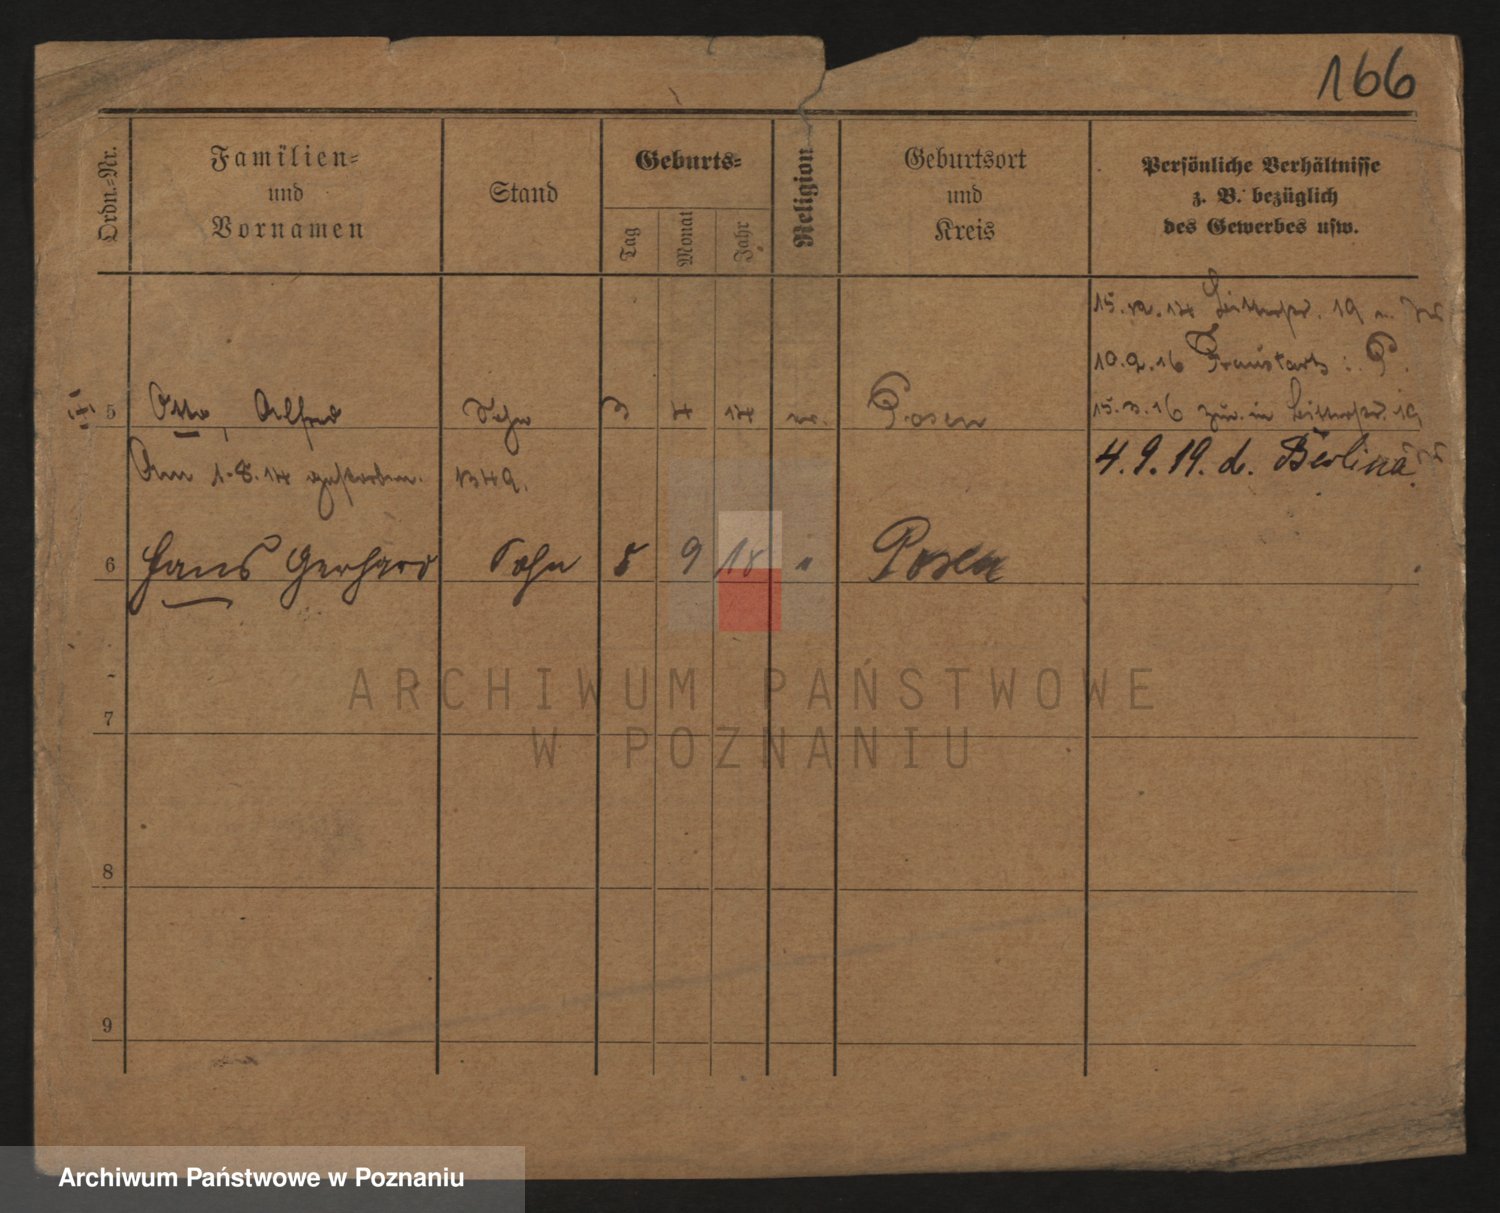 166
Ordn.-Nr.
Familien-
und
Vornamen
Stand
Geburts-
Tag
Monat
Jahr
Religion
Geburtsort
und
Kreis
Persönliche Verhältnisse
z. B. bezüglich
des Gewerbes usw.
15. 12. 14 19
10. 2. 16 P.
5 Otto, Alfred Sohn 3 4 14 Posen 15. 3. 16 zur. in 19
Am 1. 8. 14 gestorben. 1349.
4. 9. 19. d. Berlina
6 Hans Gerhard Sohn 5 9 18 " Posen
ARCHIWUM PAŃSTWOWE
7
W POZNANIU
8
9
Archiwum Państwowe w Poznaniu